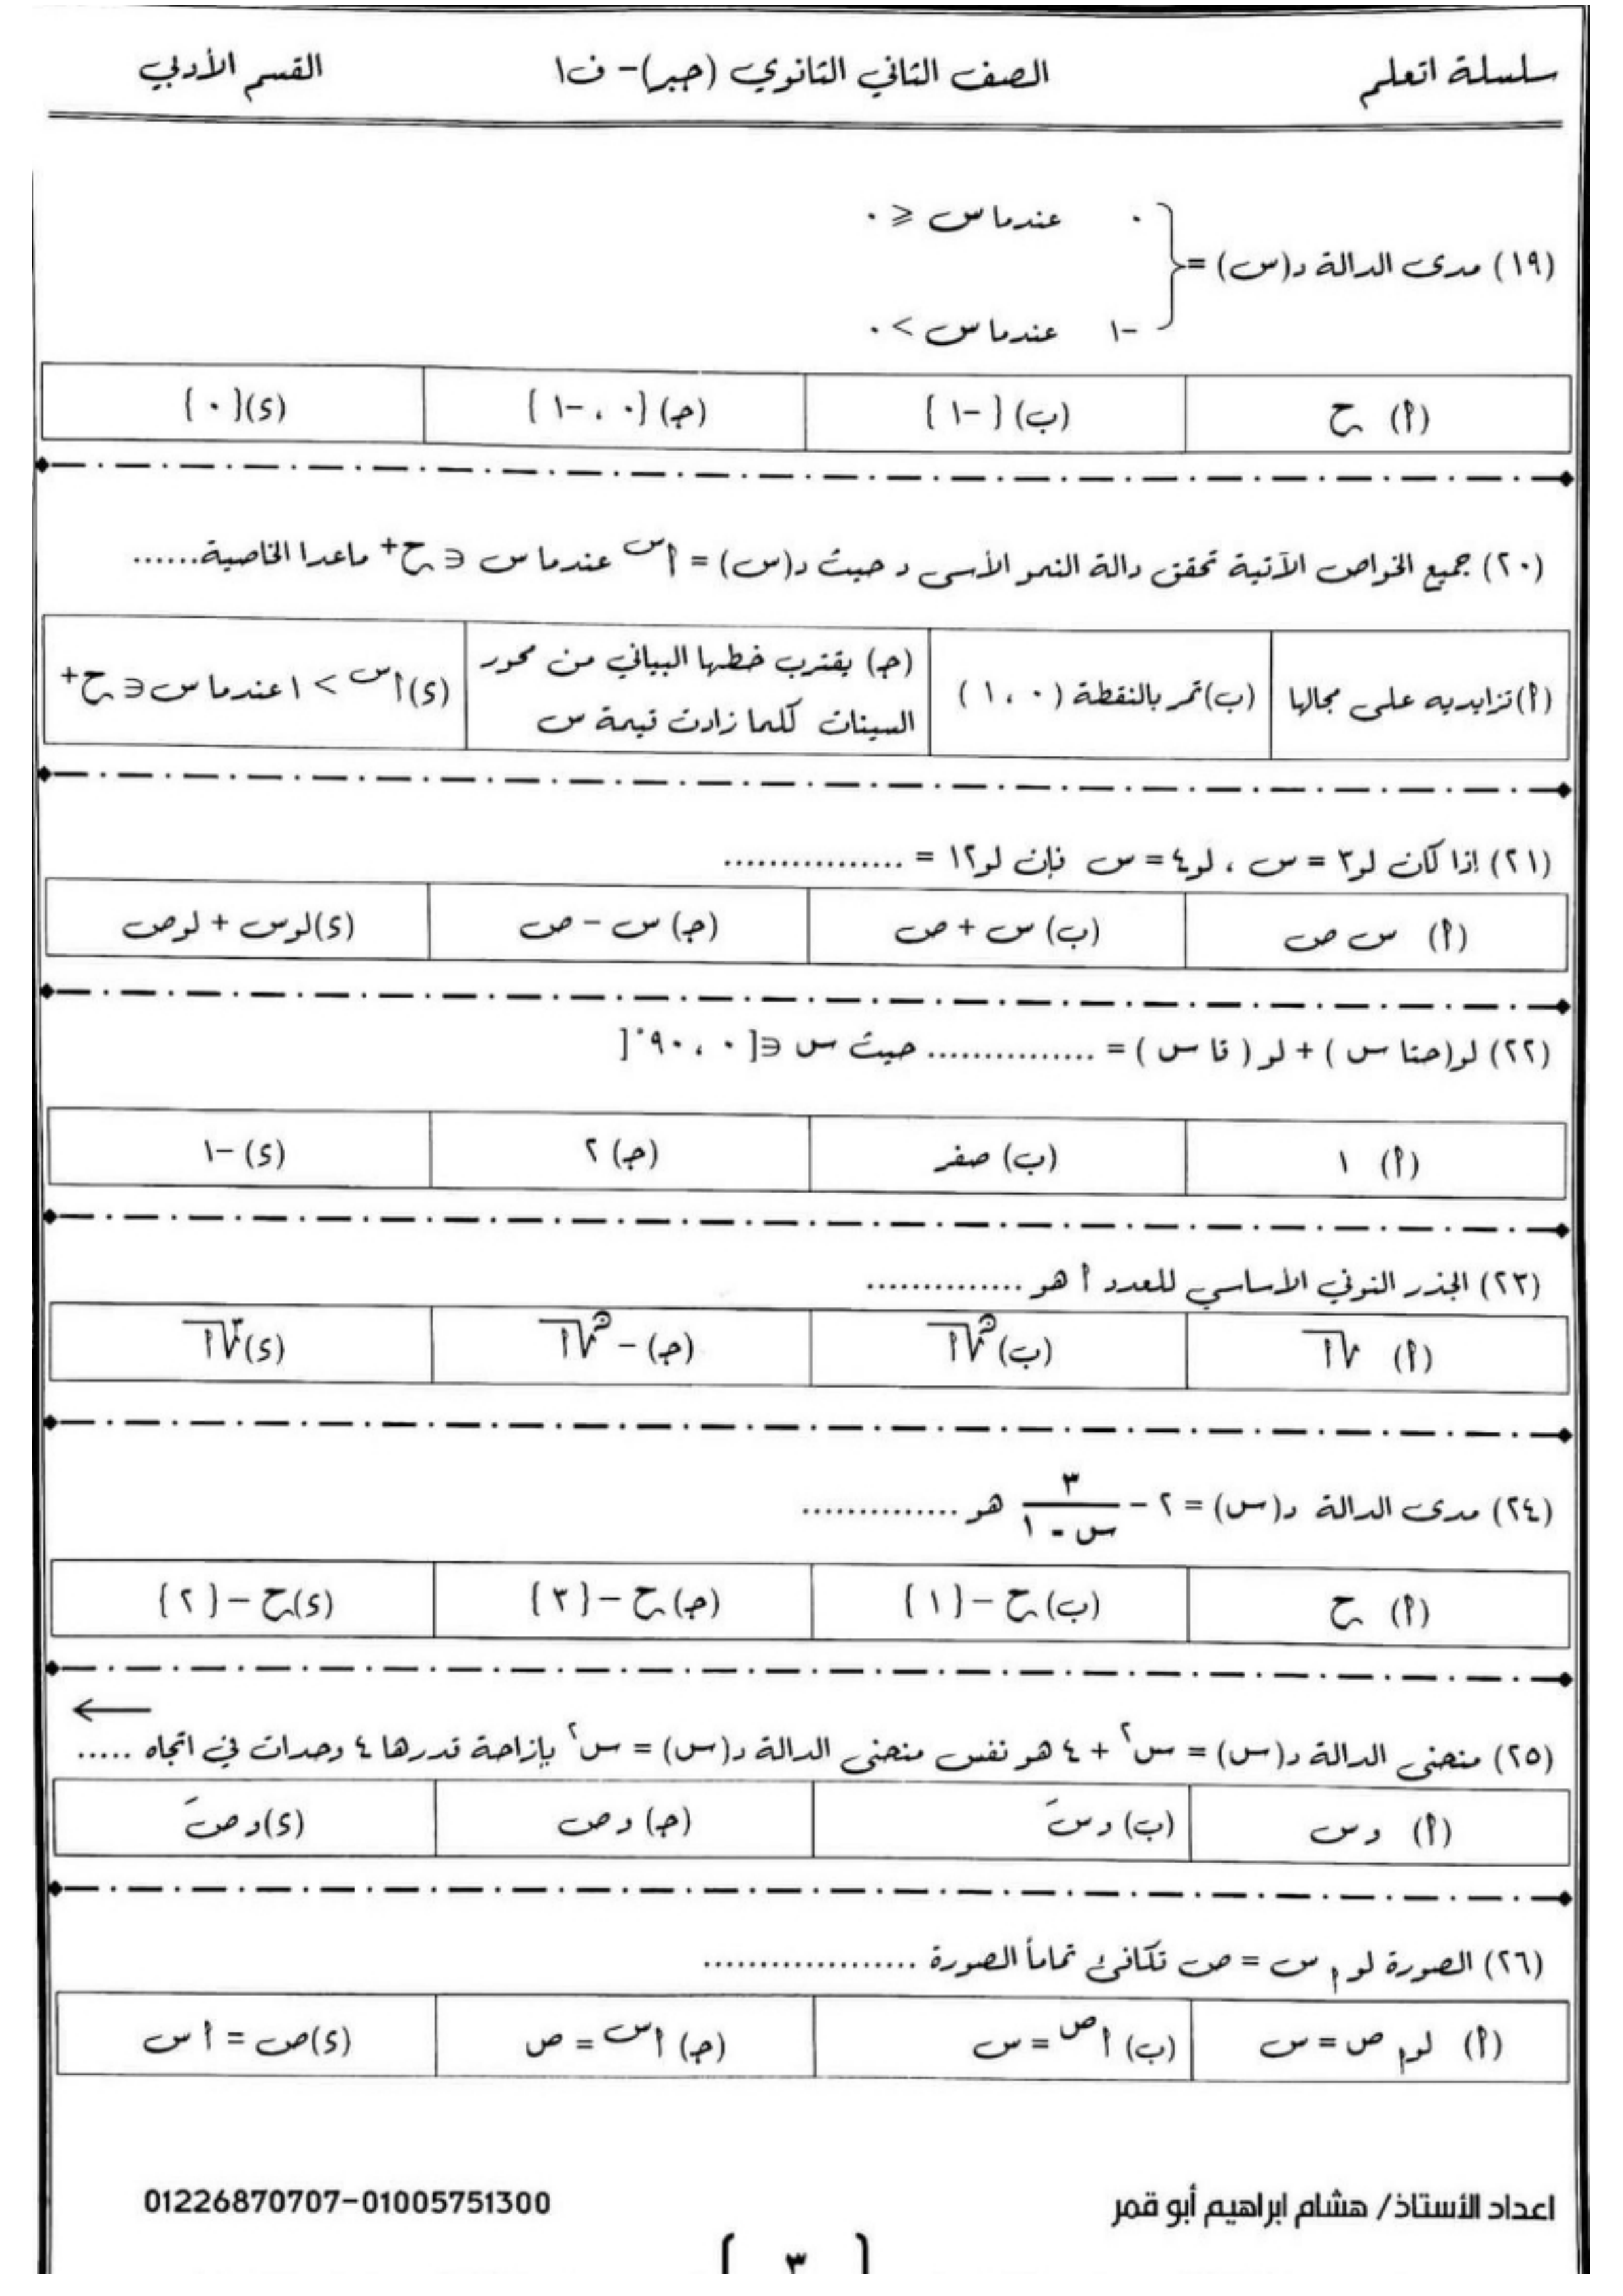 سلسلة اتعلم الصف الثاني الثانوي (جبر)- ف١ القسم الأدبي
٠ عندما س ⩾ ٠
(١٩) مدى الدالة د(س) =
-١ عندما س > ٠
(أ) ح (ب) { -١ } (ج) {٠ ، -١ } (د) { ٠ }
(٢٠) جميع الخواص الآتية تحقق دالة النمو الأسى د حيث د(س) = أ^س عندما س ∈ ح+ ماعدا الخاصية......
(أ) تزايديه على مجالها (ب) تمر بالنقطة (٠ ، ١ ) (ج) يقترب خطها البياني من محور السينات كلما زادت قيمة س (د) أ^س > ١ عندما س ∈ ح+
(٢١) إذا كان لو٣ = س ، لو٤ = س فإن لو١٢ = ................
(أ) س ص (ب) س + ص (ج) س – ص (د) لوس + لوص
(٢٢) لو(جتا س ) + لو ( قا س ) = ............... حيث س ∈] ٠ ، ٩٠°[
(أ) ١ (ب) صفر (ج) ٢ (د) -١
(٢٣) الجذر النوني الأساسي للعدد أ هو ..............
(أ) √أ (ب) ⁿ√أ (ج) – ⁿ√أ (د) ³√أ
(٢٤) مدى الدالة د(س) = ٢ – ٣/(س - ١) هو ..............
(أ) ح (ب) ح – { ١ } (ج) ح – { ٣ } (د) ح – { ٢ }
←
(٢٥) منحنى الدالة د(س) = س² + ٤ هو نفس منحنى الدالة د(س) = س² بإزاحة قدرها ٤ وحدات في اتجاه .....
(أ) وس (ب) وسَ (ج) وص (د) وصَ
(٢٦) الصورة لو أ س = ص تكافئ تماماً الصورة ...................
(أ) لو أ ص = س (ب) أ^ص = س (ج) أ^س = ص (د) ص = أ س
اعداد الأستاذ/ هشام ابراهيم أبو قمر 01226870707-01005751300
[ ٣ ]